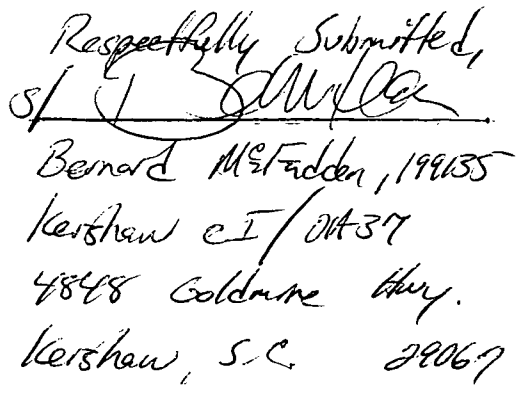 Respectfully Submitted,
s/
Bernard McFadden, 199135
Kershaw CI/OA37
4848 Goldmine Hwy.
Kershaw, S.C. 29067